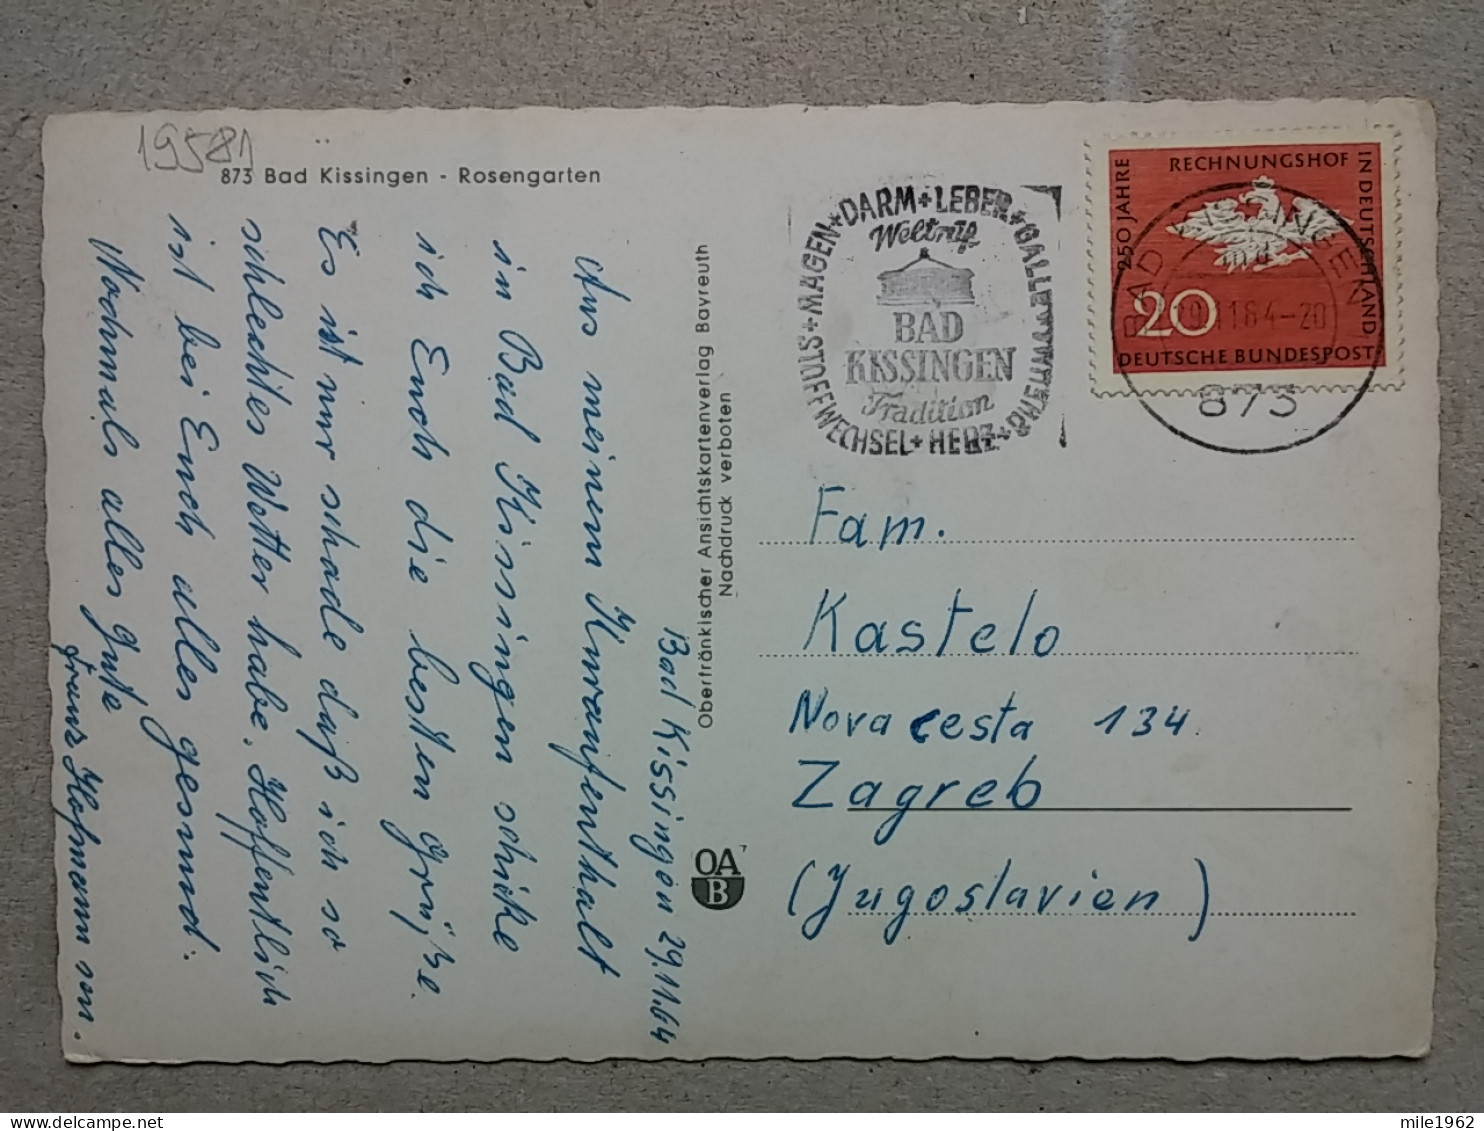 19581
873 Bad Kissingen - Rosengarten
Bad Kissingen 29.11.64
Aus meinem Kuraufenthalt
in Bad Kissingen schicke
ich Euch die besten Grüße.
Es ist nur schade daß ich so
schlechtes Wetter habe. Hoffentlich
ist bei Euch alles gesund.
Nochmals alles gute
Hofmann
Oberfränkischer Ansichtskartenverlag Bayreuth
Nachdruck verboten
OA
B
STOFFWECHSEL+MAGEN+DARM+LEBER+GALLE
RHEUMA+HERZ
Weltruf
BAD
KISSINGEN
Tradition
250 JAHRE RECHNUNGSHOF IN DEUTSCHLAND
20
DEUTSCHE BUNDESPOST
BAD KISSINGEN
29.11.64-20
873
Fam.
Kastelo
Nova cesta 134
Zagreb
(Jugoslavien)
mile1962